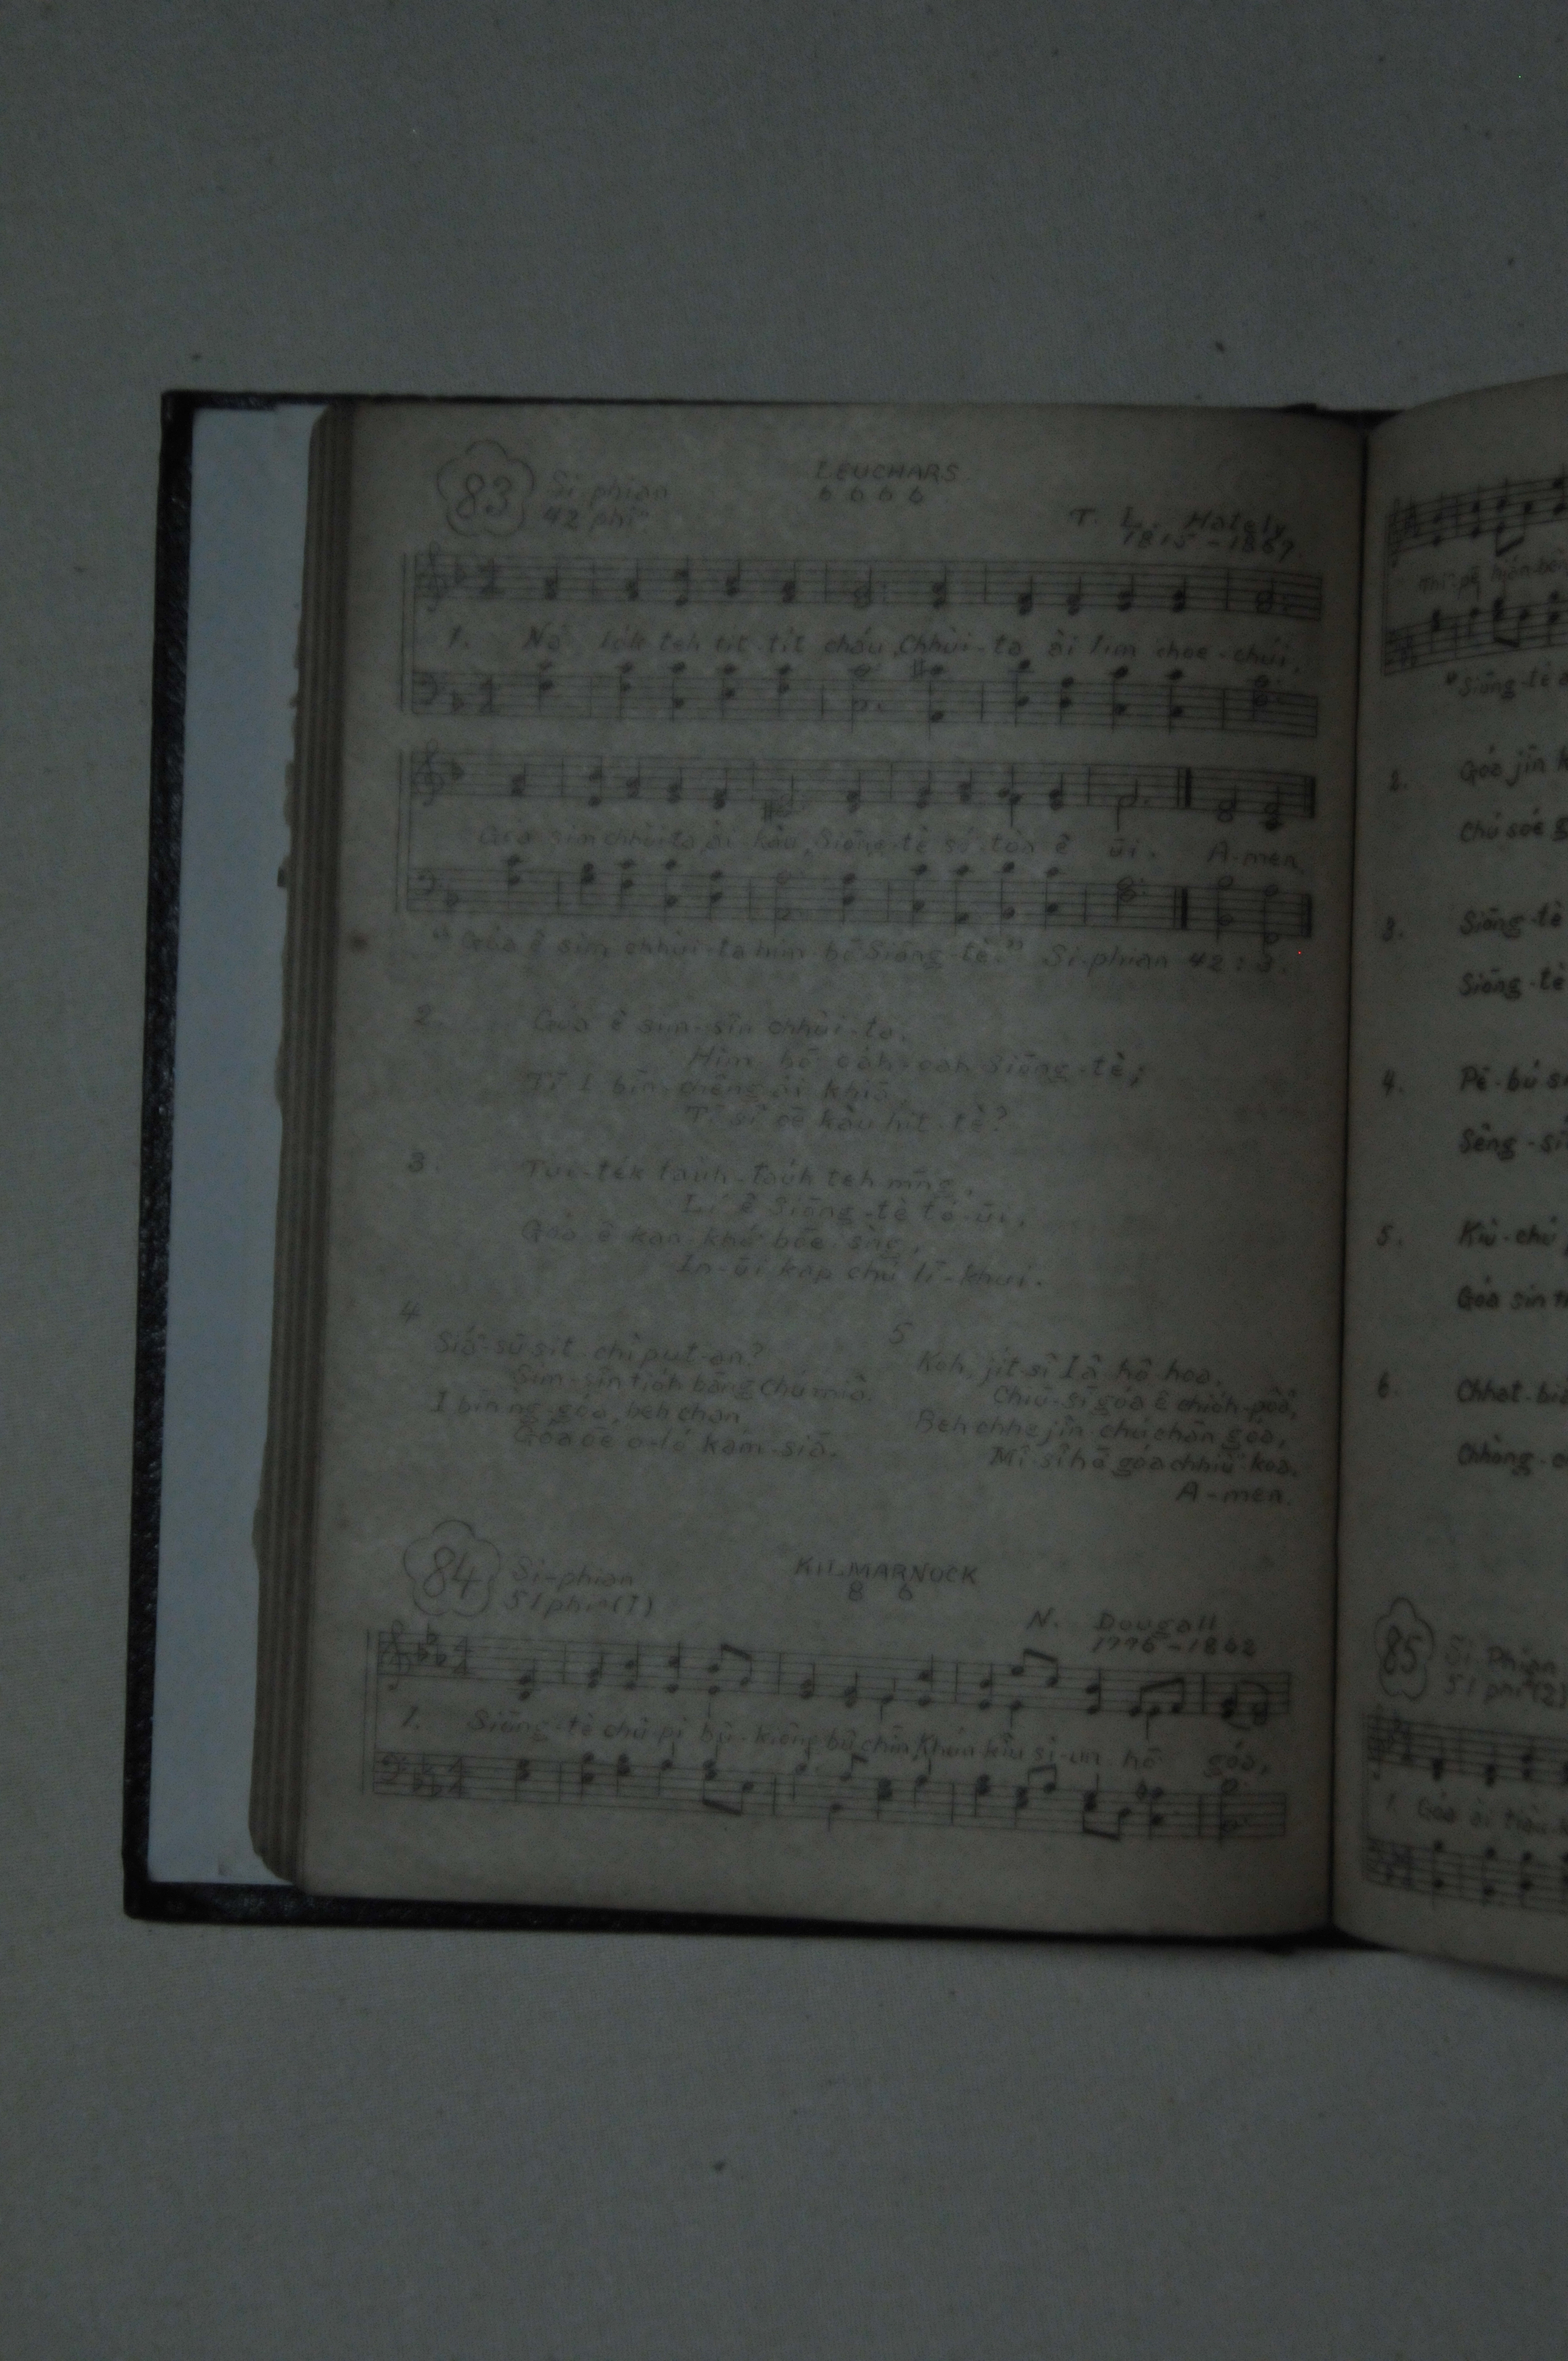 83
Si-phian
42 phiⁿ
LEUCHARS
6 6 6 6
T. L. Hately
1815-1867
1. Ná lo̍k teh tit-tit cháu, Chhùi-ta ài lim chúi,
Góa sim chhùi-ta, ài kàu, Siōng-tè só͘-tòa ê ūi. A-men.
"Góa ê sim chhùi-ta him-bō Siōng-tè." Si-phian 42:3.
2. Góa ê sim-sîn chhùi-ta,
Him-bō oa̍h-oa̍h Siōng-tè;
Tī I bīn-chêng ài khiā,
Tī-sî ōe kàu hit-tè?
3. Tùi-te̍k tauh-tauh teh mn̄g,
Lí ê Siōng-tè tó-ūi,
Góa ê kan-khó͘ bōe sǹg,
In-ūi kap Chú lī-khui.
4
Siáⁿ-sū sit-chì put-an?
Sim-sîn tio̍h bāng Chú miâ.
I bīn ǹg góa, beh chān,
Góa ōe o-ló kám-siā.
5
Koh, ji̍t-sî Iâ-hô-hoa,
Chiū-sī góa ê chio̍h-pôaⁿ,
Beh chhe jîn-chû chān góa,
Mî-sî hō͘ góa chhiùⁿ-koa.
A-men.
84
Si-phian
51 phiⁿ (1)
KILMARNOCK
8 6
N. Dougall
1776-1862
1. Siōng-tè chû-pi bû-kiông bû-chīn, Khún-kiû si-un hō͘ góa,
"Siōng-tè
2. Góa jīn
Chú sóe
3. Siōng-tè
Siōng-tè
4. Pē-bú
Sèng-si
5. Kiù-chú
Góa sin
6. Chhat-
Chhòng-
85
Si-Phian
51 phiⁿ (2)
1. Góa ài